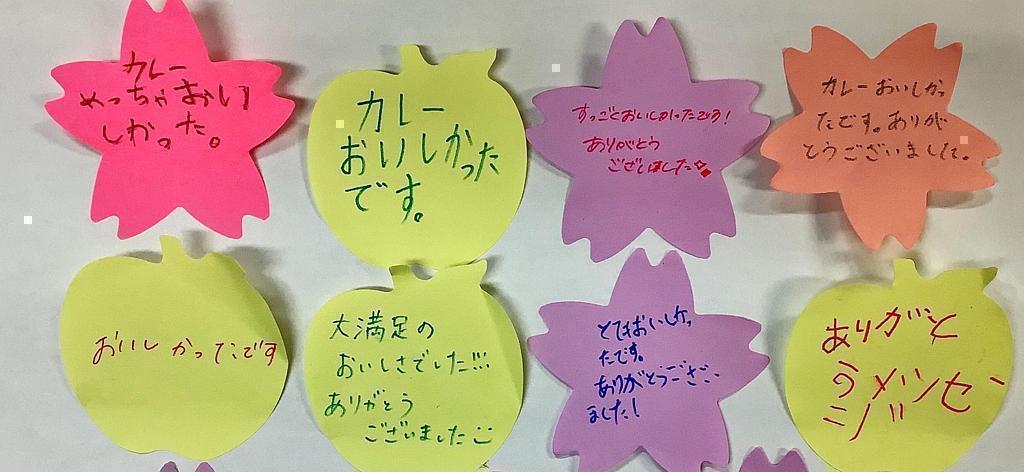 カレー
めっちゃおい
しかった。
カレー
おいしかった
です。
すっごくおいしかったです!
ありがとう
ございました
カレーおいしかっ
たです。ありが
とうございました。
おいしかったです
大満足の
おいしさでした!!!
ありがとう
ございました
とてもおいしかっ
たです。
ありがとうござい
ました!
ありがと
う